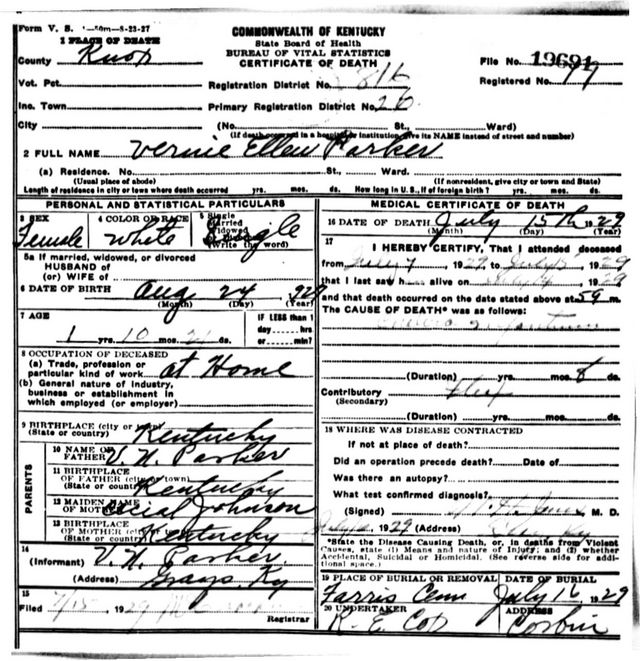 Form V. S. 1-50m-8-23-27
COMMONWEALTH OF KENTUCKY
State Board of Health
BUREAU OF VITAL STATISTICS
CERTIFICATE OF DEATH
1 PLACE OF DEATH
County Knox
File No. 19691
Vot. Pct. Registration District No. 816 Registered No. 99
Inc. Town Primary Registration District No. 26
City (No. St., Ward)
(If death occurred in a hospital or institution give its NAME instead of street and number)
2 FULL NAME Vernie Ellen Parker
(a) Residence. No. St., Ward.
(Usual place of abode) (If nonresident, give city or town and State)
Length of residence in city or town where death occurred yrs. mos. ds. How long in U. S., if of foreign birth? yrs. mos. ds.
PERSONAL AND STATISTICAL PARTICULARS
3 SEX 4 COLOR OR RACE 5 Single Married Widowed
Female white Single
(Write the word)
5a If married, widowed, or divorced
HUSBAND of
(or) WIFE of
6 DATE OF BIRTH Aug 24 1929
(Month) (Day) (Year)
7 AGE IF LESS than 1
day hrs
1 yrs. 10 mos. 21 ds. or min?
8 OCCUPATION OF DECEASED
(a) Trade, profession or
particular kind of work at Home
(b) General nature of industry,
business or establishment in
which employed (or employer)
9 BIRTHPLACE (city or town)
(State or country) Kentucky
PARENTS
10 NAME OF
FATHER V. N. Parker
11 BIRTHPLACE
OF FATHER (city or town)
(State or country) Kentucky
12 MAIDEN NAME
OF MOTHER Johnson
13 BIRTHPLACE
OF MOTHER (city or town)
(State or country) Kentucky
14
(Informant) V. N. Parker
(Address) Grays Ky
15
Filed 7/15 1929
Registrar
MEDICAL CERTIFICATE OF DEATH
16 DATE OF DEATH July 15th 1929
(Month) (Day) (Year)
17
I HEREBY CERTIFY, That I attended deceased
from July 7 1929 to July 15 1929
that I last saw h alive on July 1929
and that death occurred on the date stated above at m.
The CAUSE OF DEATH* was as follows:
(Duration) yrs. mos. 8 ds.
Contributory
(Secondary)
(Duration) yrs. mos. ds.
18 WHERE WAS DISEASE CONTRACTED
If not at place of death?
Did an operation precede death? Date of
Was there an autopsy?
What test confirmed diagnosis?
(Signed) M. D.
1929 (Address)
*State the Disease Causing Death, or, in deaths from Violent
Causes, state (1) Means and nature of Injury; and (2) whether
Accidental, Suicidal or Homicidal. (See reverse side for addi-
tional space.)
19 PLACE OF BURIAL OR REMOVAL DATE OF BURIAL
Farris Cem July 16 1929
20 UNDERTAKER ADDRESS
K. E. Cop Corbin